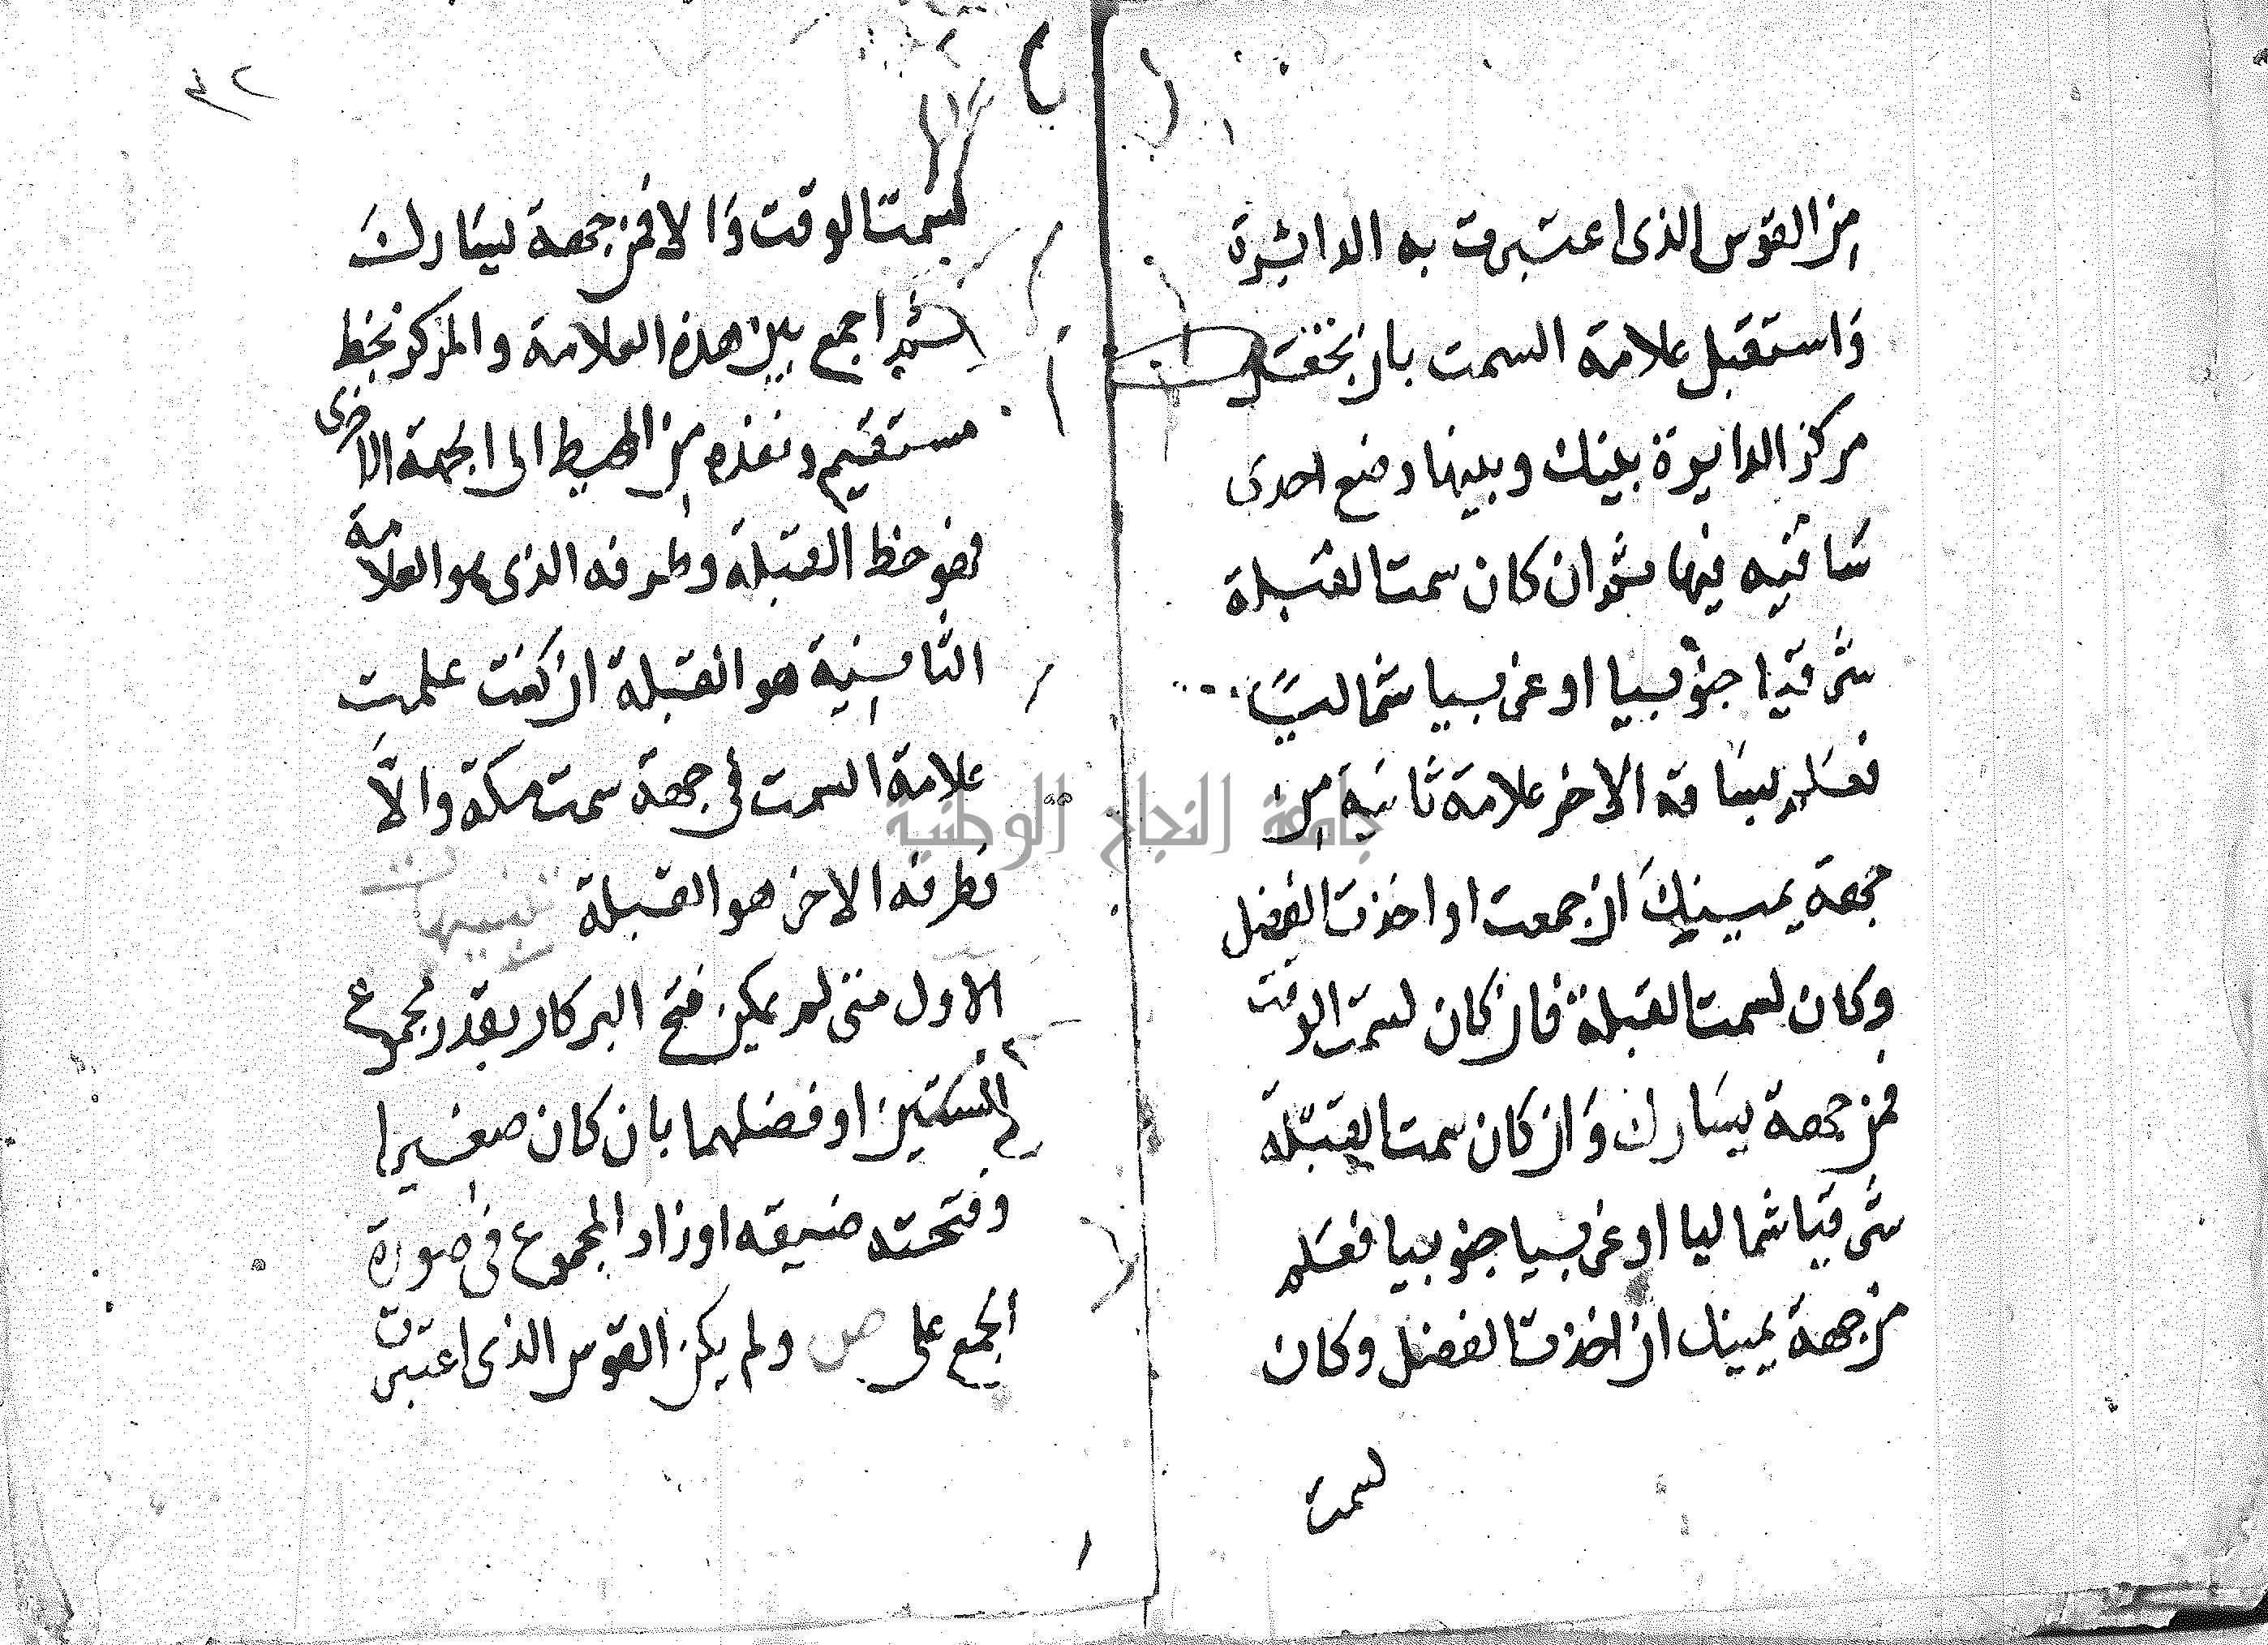 من القوس الذى اعتبرت به الدائرة
واستقبل علامة السمت بان تجعل
مركز الدايرة بينك وبينها وضع احدى
ساقيه فيها ثم ان كان سمت القبلة
شرقيا جنوبيا او غربيا شماليا
فعلم بساقه الاخر علامة ثانية من
جهة يمينك ان جمعت او اخذت الفضل
وكان لسمت القبلة فان كان لسمت الوقت
فمن جهة يسارك وان كان سمت القبلة
شرقيا شماليا او غربيا جنوبيا فعلم
من جهة يمينك ان اخذت الفضل وكان
لسمت
٣٢
لسمت الوقت والا فمن جهة يسارك
ثم اجمع بين هذه العلامة والمركز بخط
مستقيم ونفذه من المحيط الى الجهة الاخرى
فهو خط القبلة وطرفه الذى هو العلامة
الثانية هو القبلة ان كنت علمت
علامة السمت فى جهة سمت مكة والا
فطرفه الاخر هو القبلة تنبيهان
الاول متى لم يمكن فتح البركار بقدر مجموع
السمتين او فضلهما بان كان صغيرا
وفتحته ضيقه او زاد المجموع فى صورة
الجمع على ص ولم يكن القوس الذى اعتبرت
جامعة النجاح الوطنية